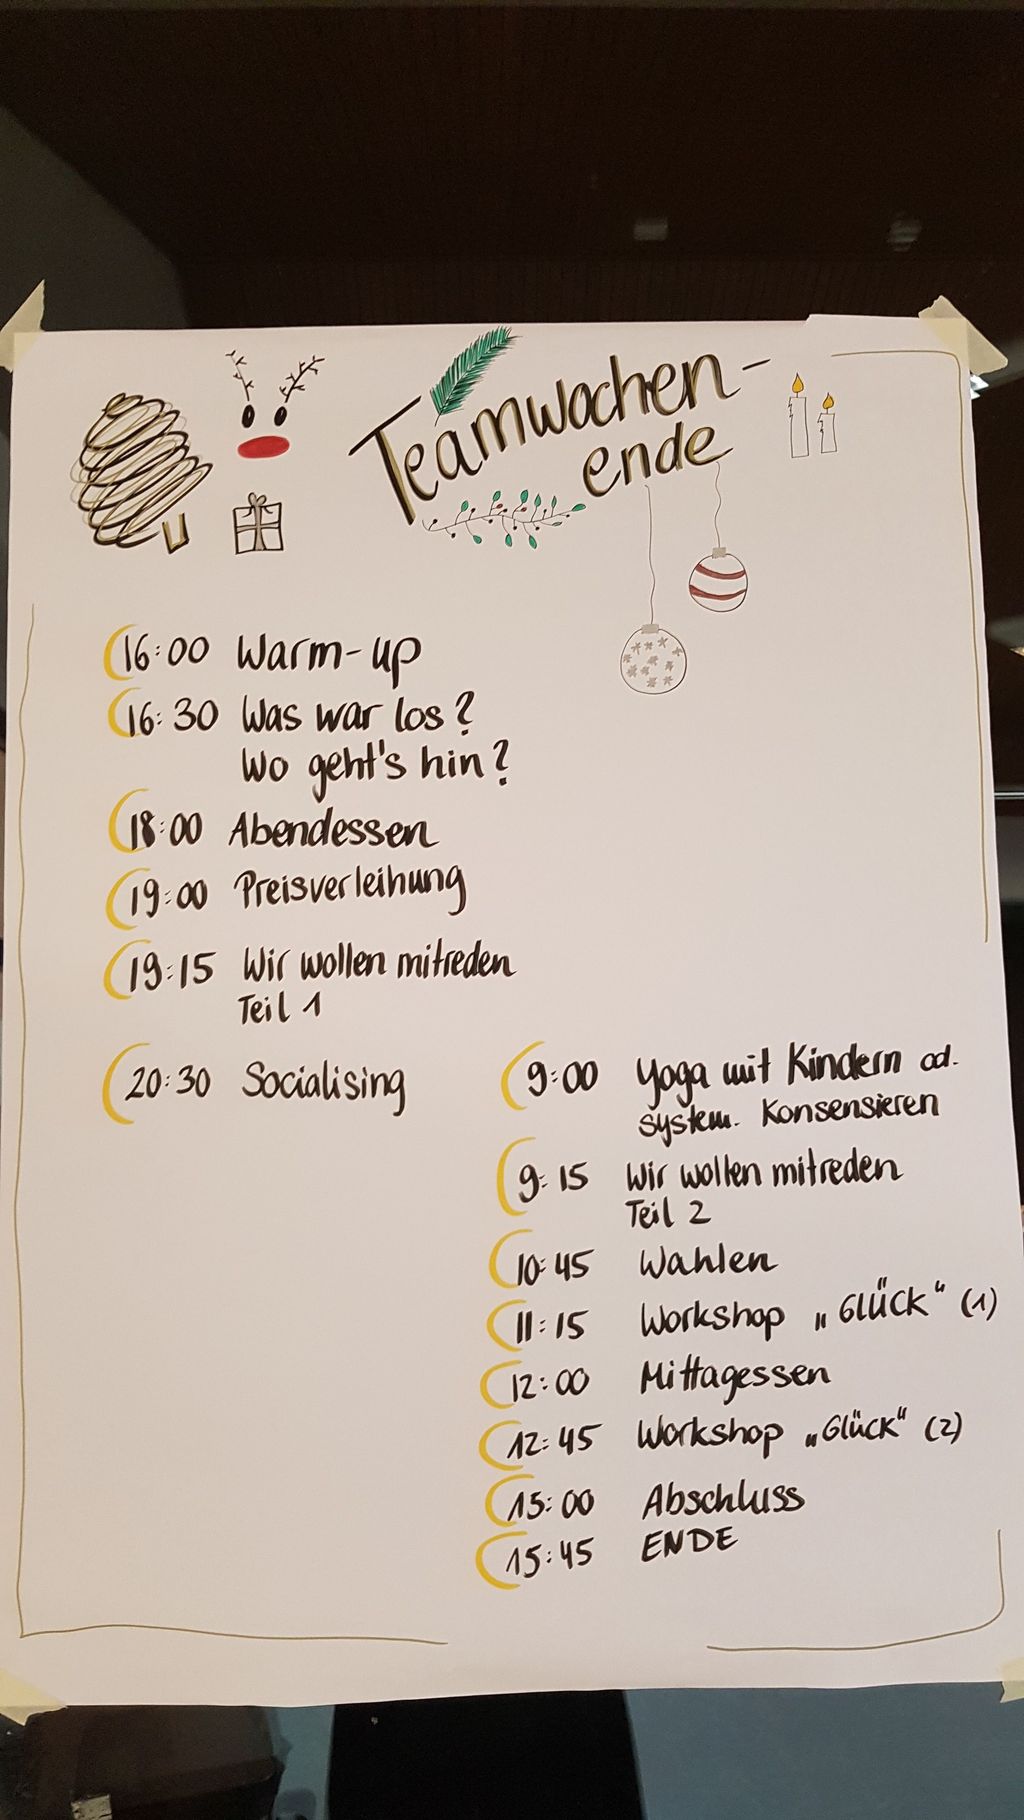 Teamwochen-
ende
16:00 Warm-up
16:30 Was war los?
Wo geht's hin?
18:00 Abendessen
19:00 Preisverleihung
19:15 Wir wollen mitreden
Teil 1
20:30 Socialising
9:00 Yoga mit Kindern od.
system. Konsensieren
9:15 Wir wollen mitreden
Teil 2
10:45 Wahlen
11:15 Workshop „GLÜCK“ (1)
12:00 Mittagessen
12:45 Workshop „Glück“ (2)
15:00 Abschluss
15:45 ENDE